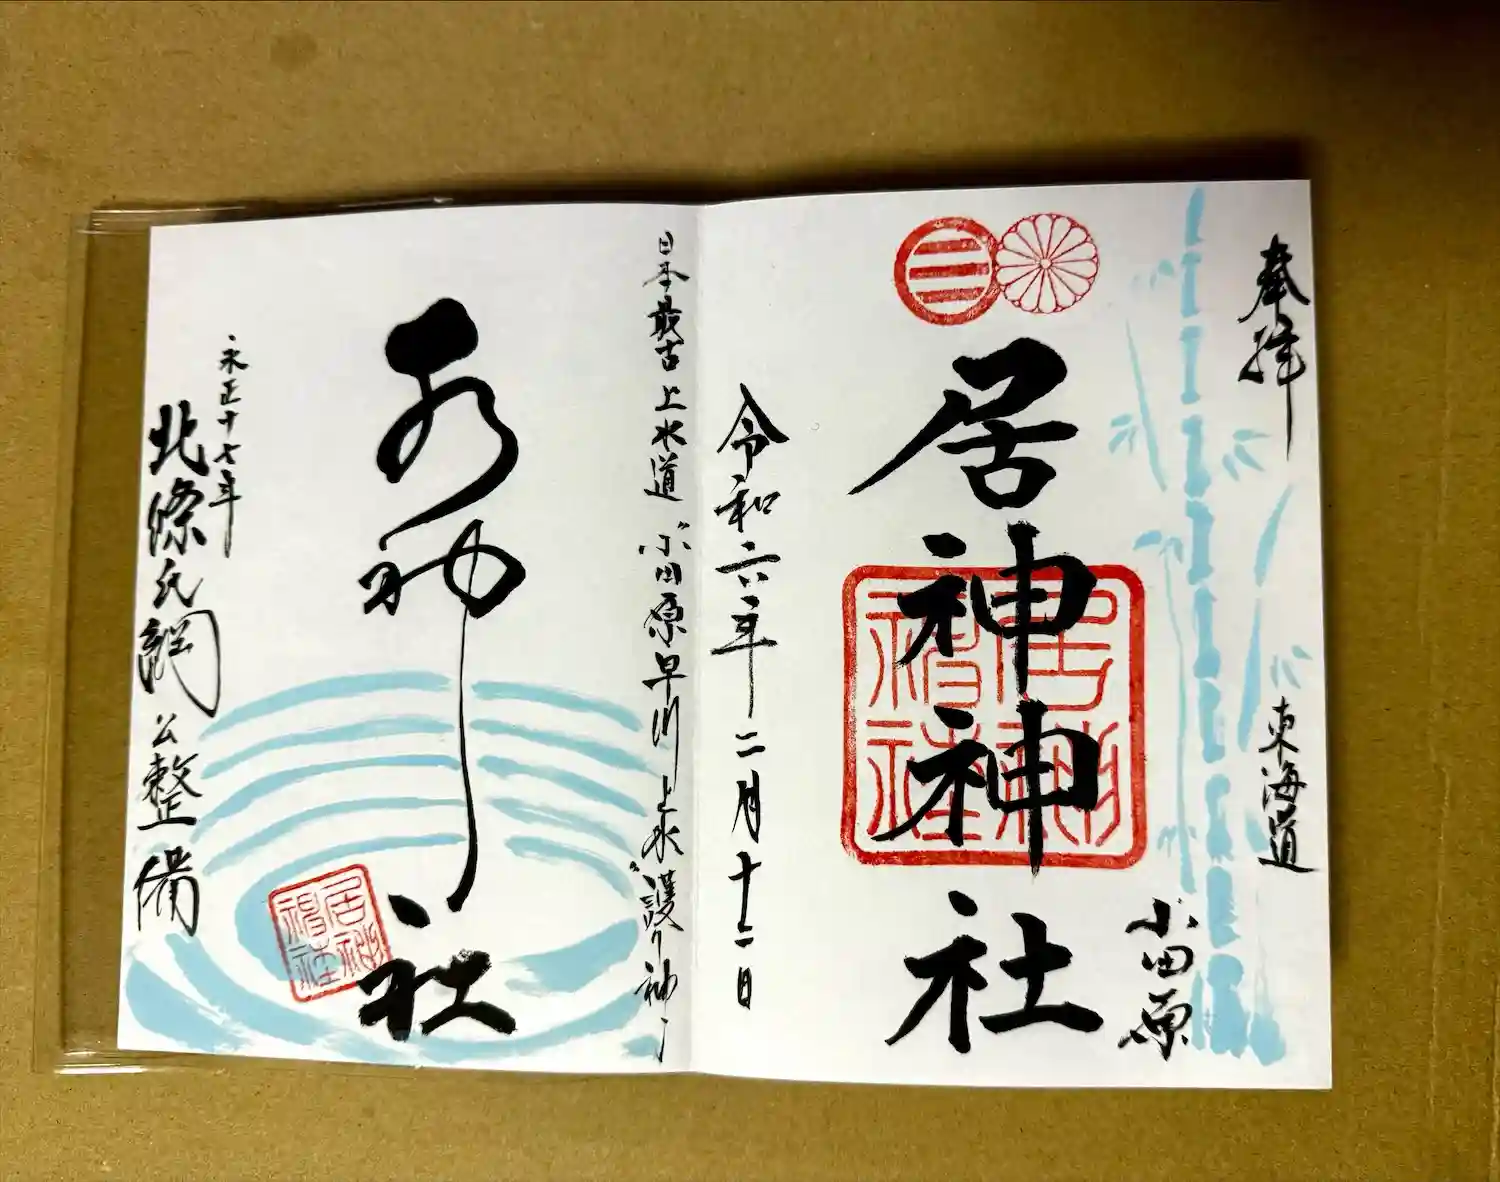 奉拝
東海道
小田原
居神神社
居神
神社
令和六年二月十二日
日本最古上水道 小田原早川上水〝護り神〟
水神社
居神
神社
永正十七年
北條氏綱公整備